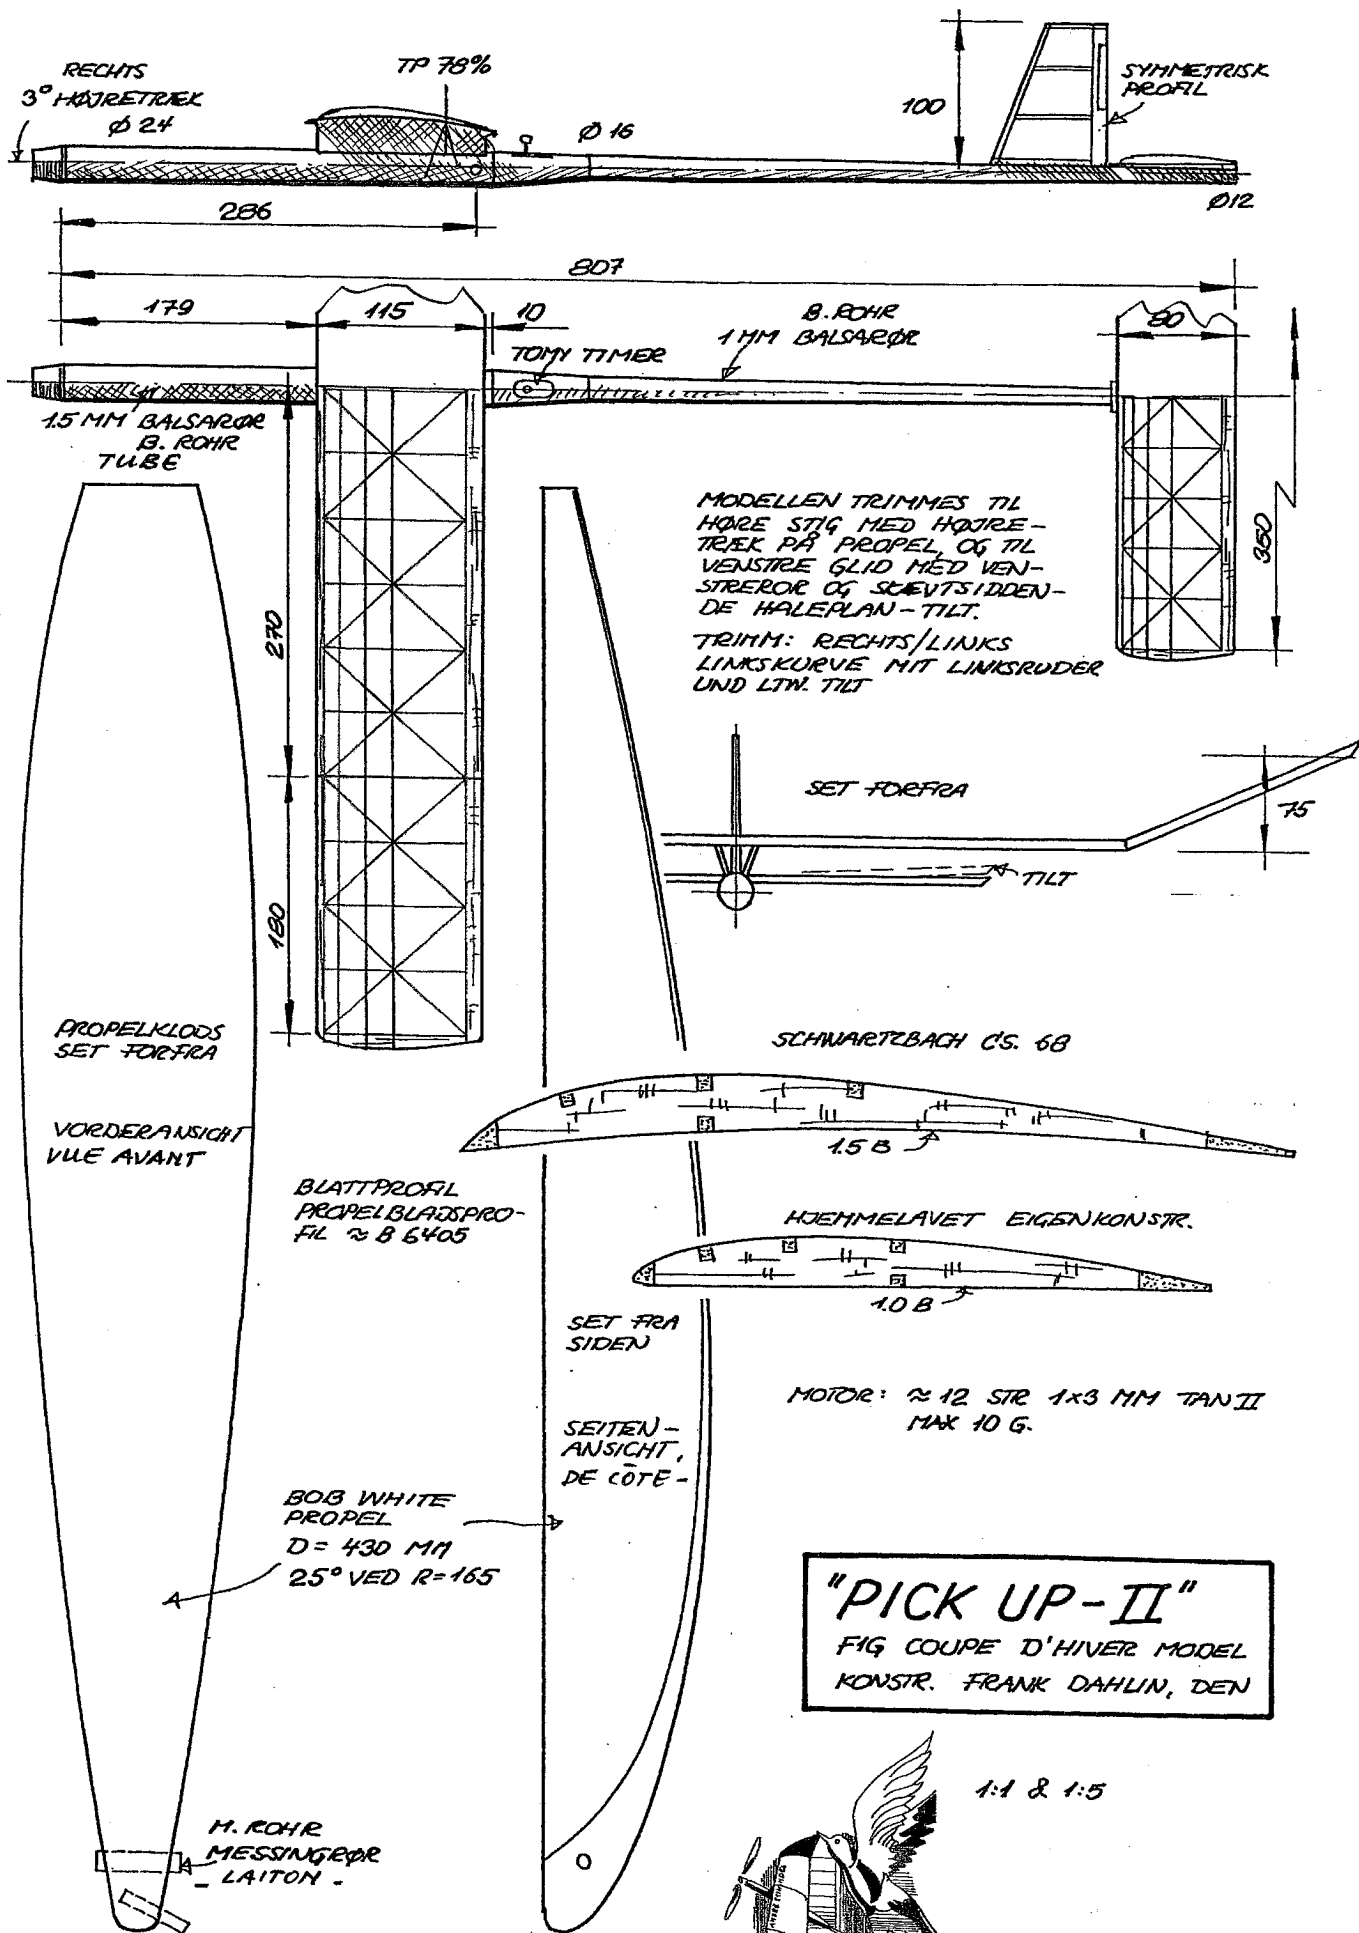 RECHTS
3° HØJRETRÆK
Ø 24
TP 78%
Ø 16
100
SYMMETRISK
PROFIL
Ø12
286
807
179
115
10
B. ROHR
1 MM BALSARØR
80
TOMY TIMER
1.5 MM BALSARØR
B. ROHR
TUBE
270
180
350
MODELLEN TRIMMES TIL
HØRE STIG MED HØJRE-
TRÆK PÅ PROPEL, OG TIL
VENSTRE GLID MED VEN-
STREROR OG SKÆVTSIDDEN-
DE HALEPLAN - TILT.
TRIMM: RECHTS/LINKS
LINKSKURVE MIT LINKSRUDER
UND LTW. TILT
SET FORFRA
75
TILT
PROPELKLODS
SET FORFRA
VORDERANSICHT
VUE AVANT
SCHWARTZBACH CS. 68
1.5 B
BLATTPROFIL
PROPELBLADSPRO-
FIL ≈ B 6405
HJEMMELAVET EIGENKONSTR.
1.0 B
SET FRA
SIDEN
SEITEN-
ANSICHT,
DE CÔTE -
MOTOR: ≈ 12 STR 1x3 MM TAN II
MAX 10 G.
BOB WHITE
PROPEL
D = 430 MM
25° VED R=165
"PICK UP-II"
F1G COUPE D'HIVER MODEL
KONSTR. FRANK DAHLIN, DEN
1:1 & 1:5
M. ROHR
MESSINGRØR
- LAITON -